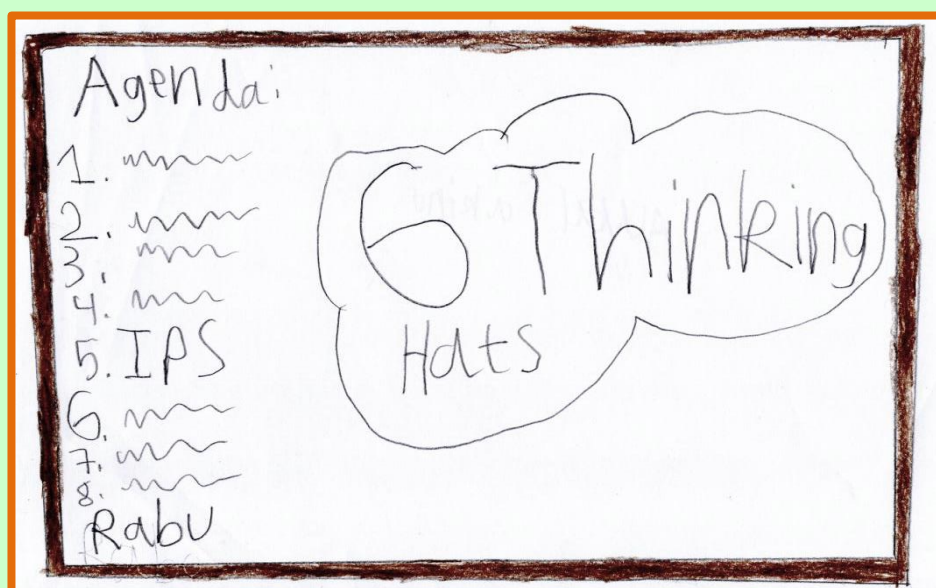 Agenda:
1.
2.
3.
4.
5. IPS
6.
7.
8.
Rabu
6 Thinking
Hats